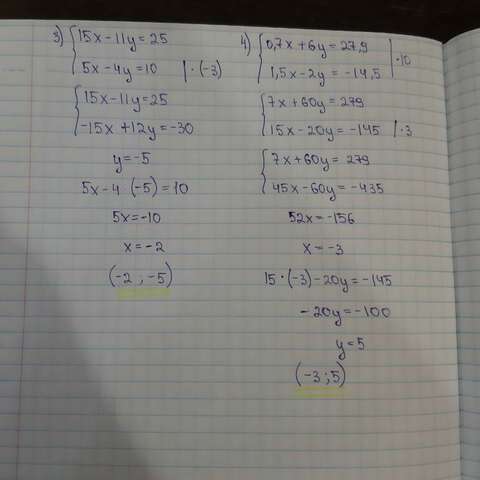 3) 15x-11y=25
5x-4y=10 | · (-3)
15x-11y=25
-15x+12y=-30
y=-5
5x-4 · (-5)=10
5x=-10
x=-2
(-2 ; -5)
4) 0,7x+6y=27,9
1,5x-2y=-14,5 | ·10
7x+60y=279
15x-20y=-145 | ·3
7x+60y=279
45x-60y=-435
52x=-156
x=-3
15 · (-3)-20y=-145
-20y=-100
y=5
(-3 ; 5)